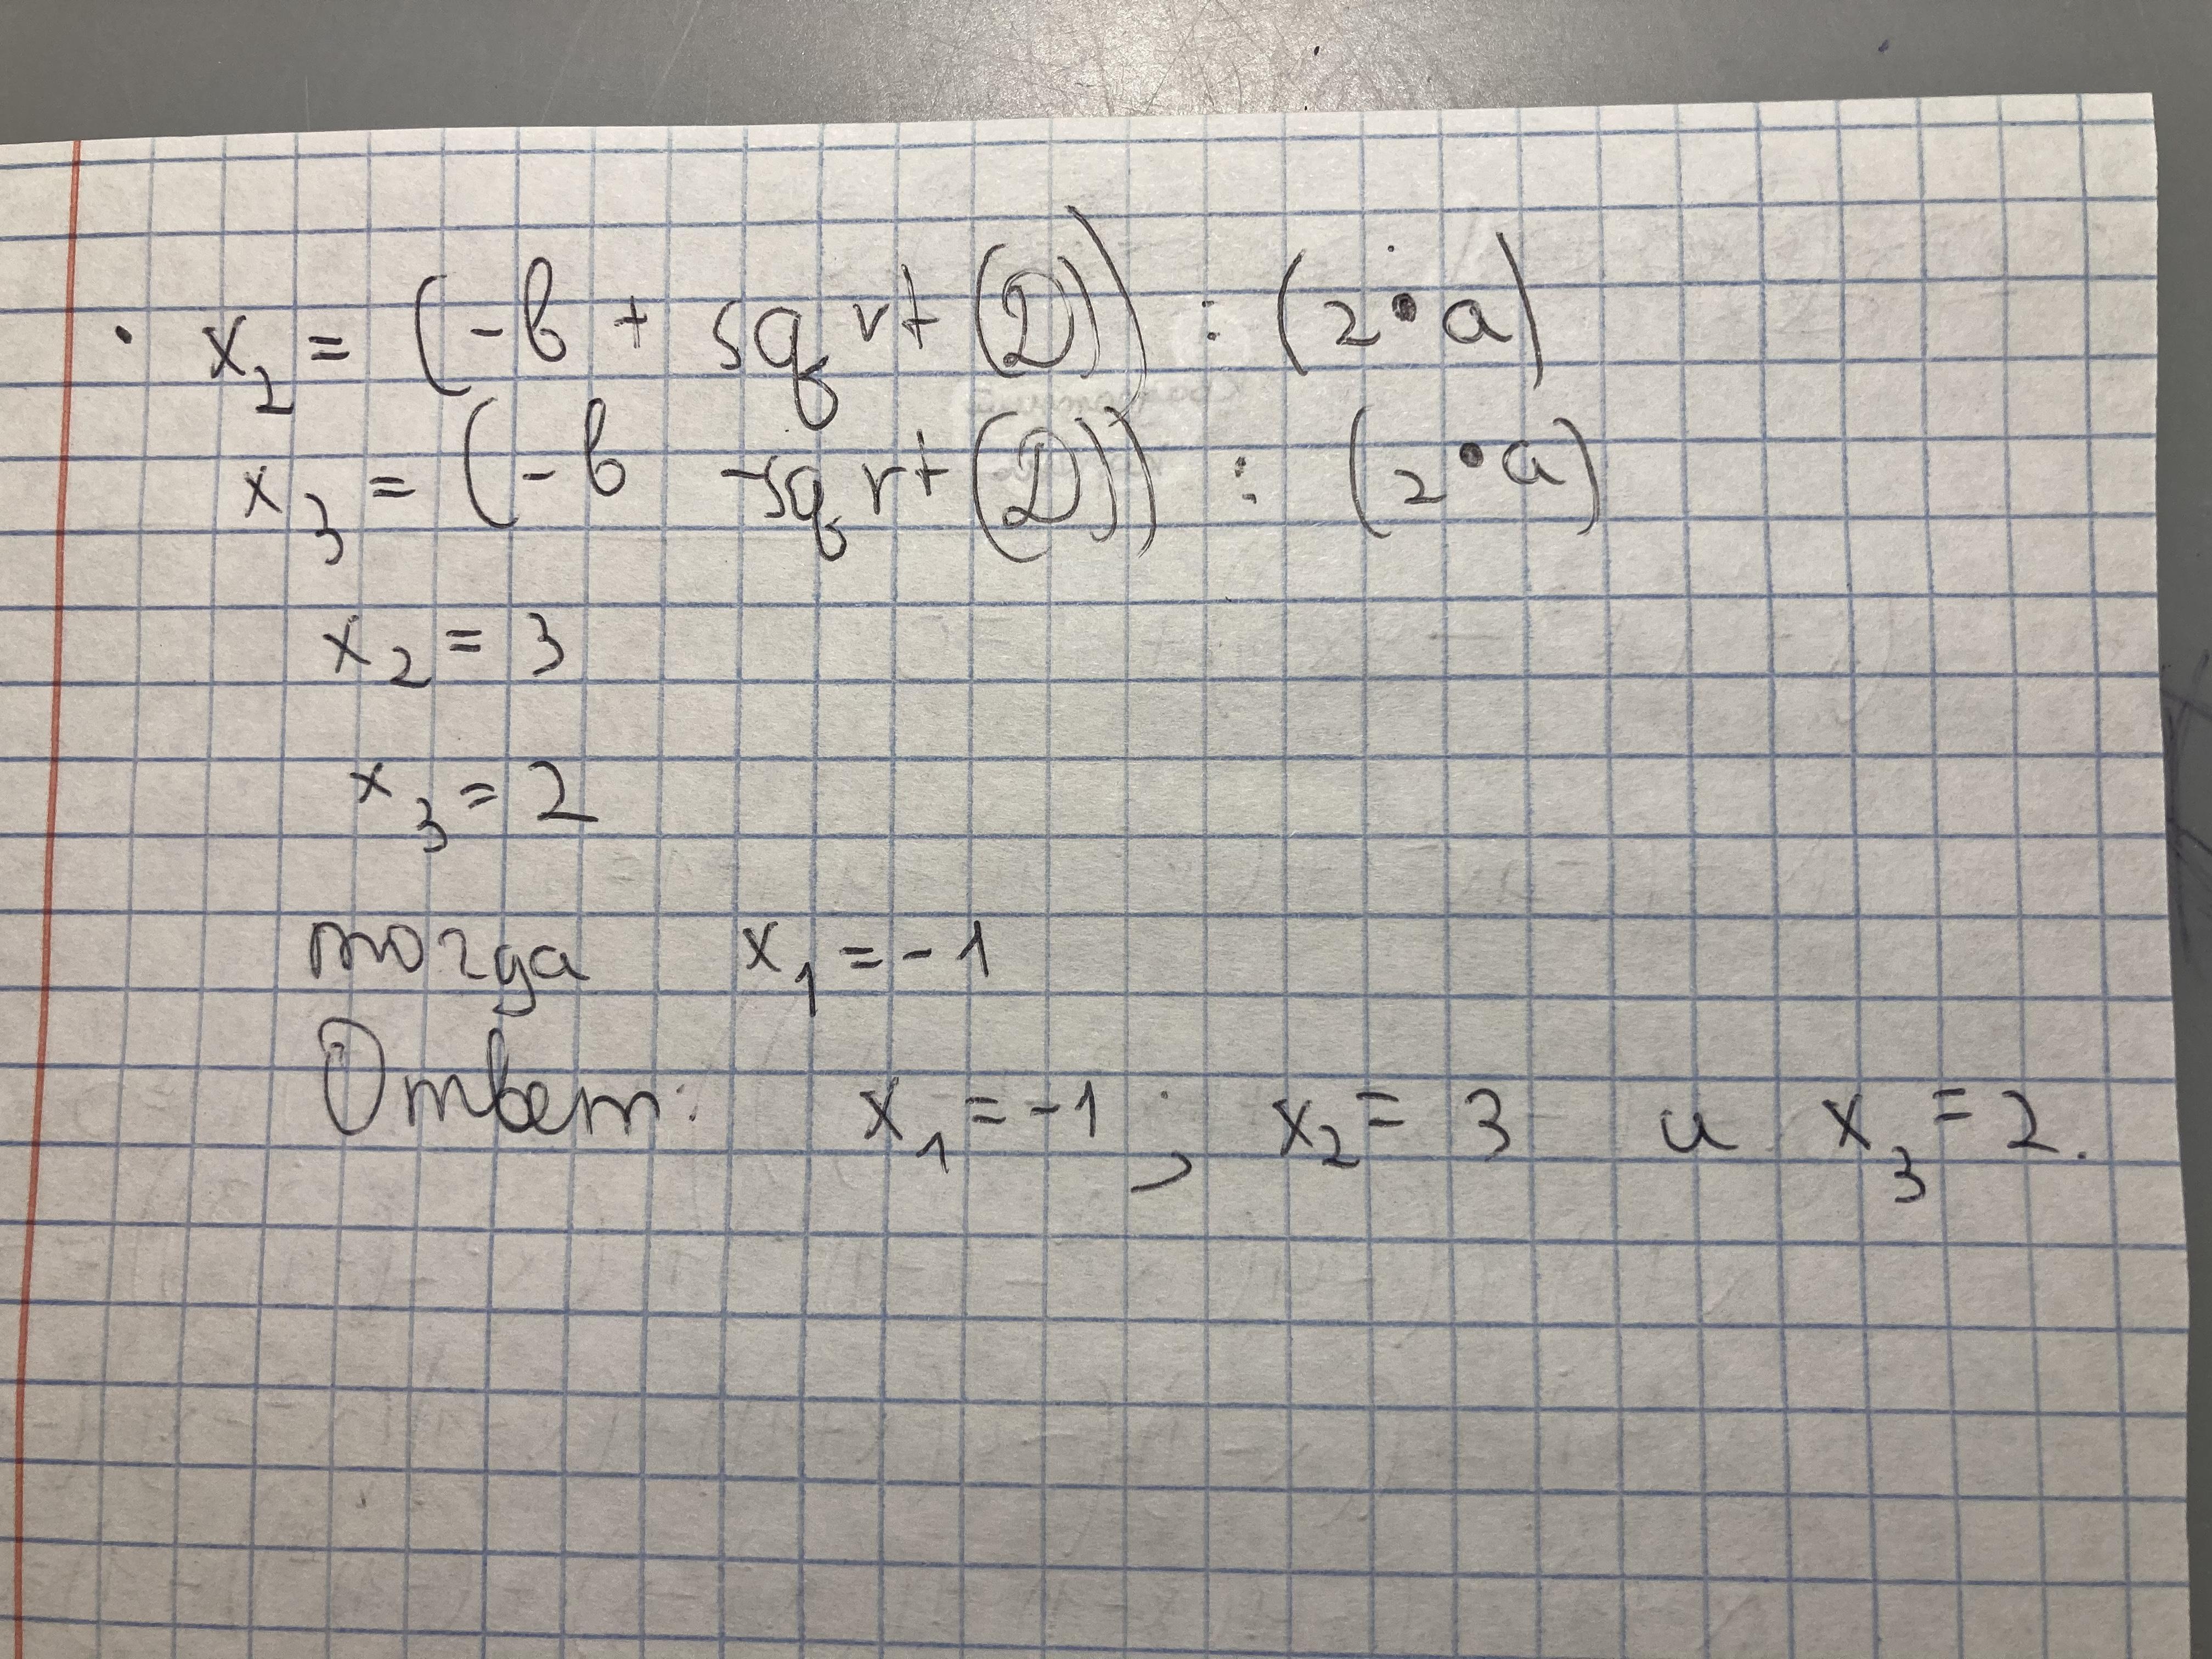 · x₂ = (-b + sqrt(D)) : (2 • a)
x₃ = (-b - sqrt(D)) : (2 • a)
x₂ = 3
x₃ = 2
тогда x₁ = -1
Ответ: x₁ = -1; x₂ = 3 и x₃ = 2.